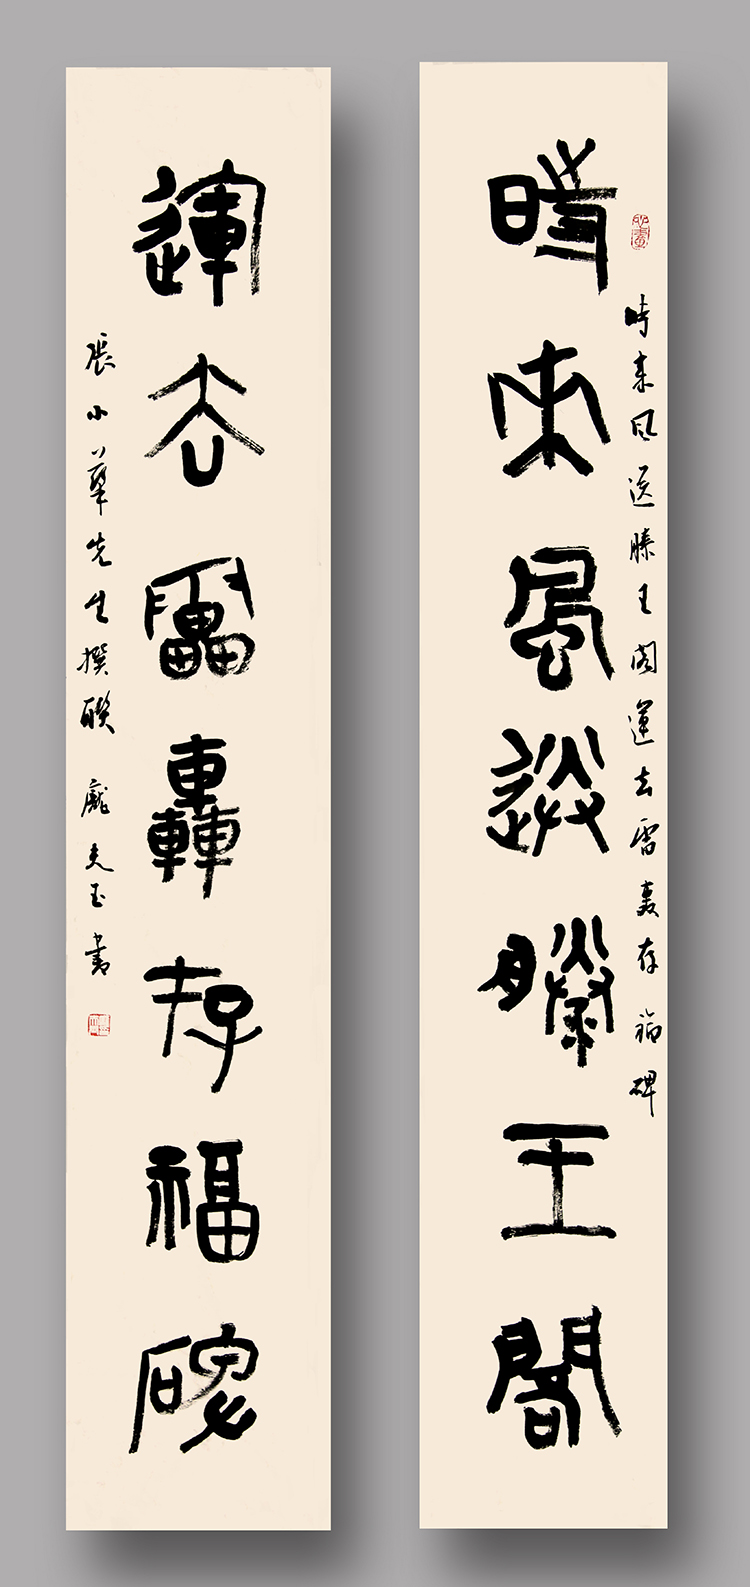 時來風送滕王閣
時来風送滕王阁運去雷轰存福碑
運去雷轟存福碑
張小華先生撰联 龐夫玉書